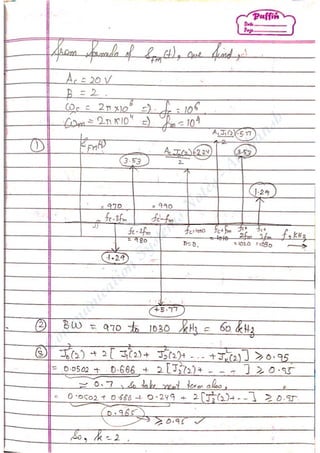 Puffin
Date
Page
from formula of S_FM(t), one find,
Ac = 20 V
β = 2
ωc = 2π×10⁶ ⇒ fc = 10⁶
ωm = 2π×10⁴ ⇒ fm = 10⁴
① S_FM(f)
Ac J1(2) = 5.77
2
Ac J0(2) = 2.24
2
3.53
3.53
1.29
= 970
= 990
fc-3fm
fc-fm
= 980
fc=1000
fc+fm
= 1010
fc+
2fm
= 1020
fc+
3fm
= 1030
f, kHz
1.29
+5.77
② BW = 970 to 1030 kHz = 60 kHz
③ J0²(2) + 2[J1²(2) + J2²(2) + -- + Jk²(2)] ≥ 0.95
= 0.0502 + 0.666 + 2[J2²(2) + -- ] ≥ 0.95
≥ 0.7, so take next term also,
= 0.0502 + 0.666 + 0.249 + 2[J3²(2) + --] ≥ 0.95
0.965
≥ 0.95 ✓
So, k = 2.